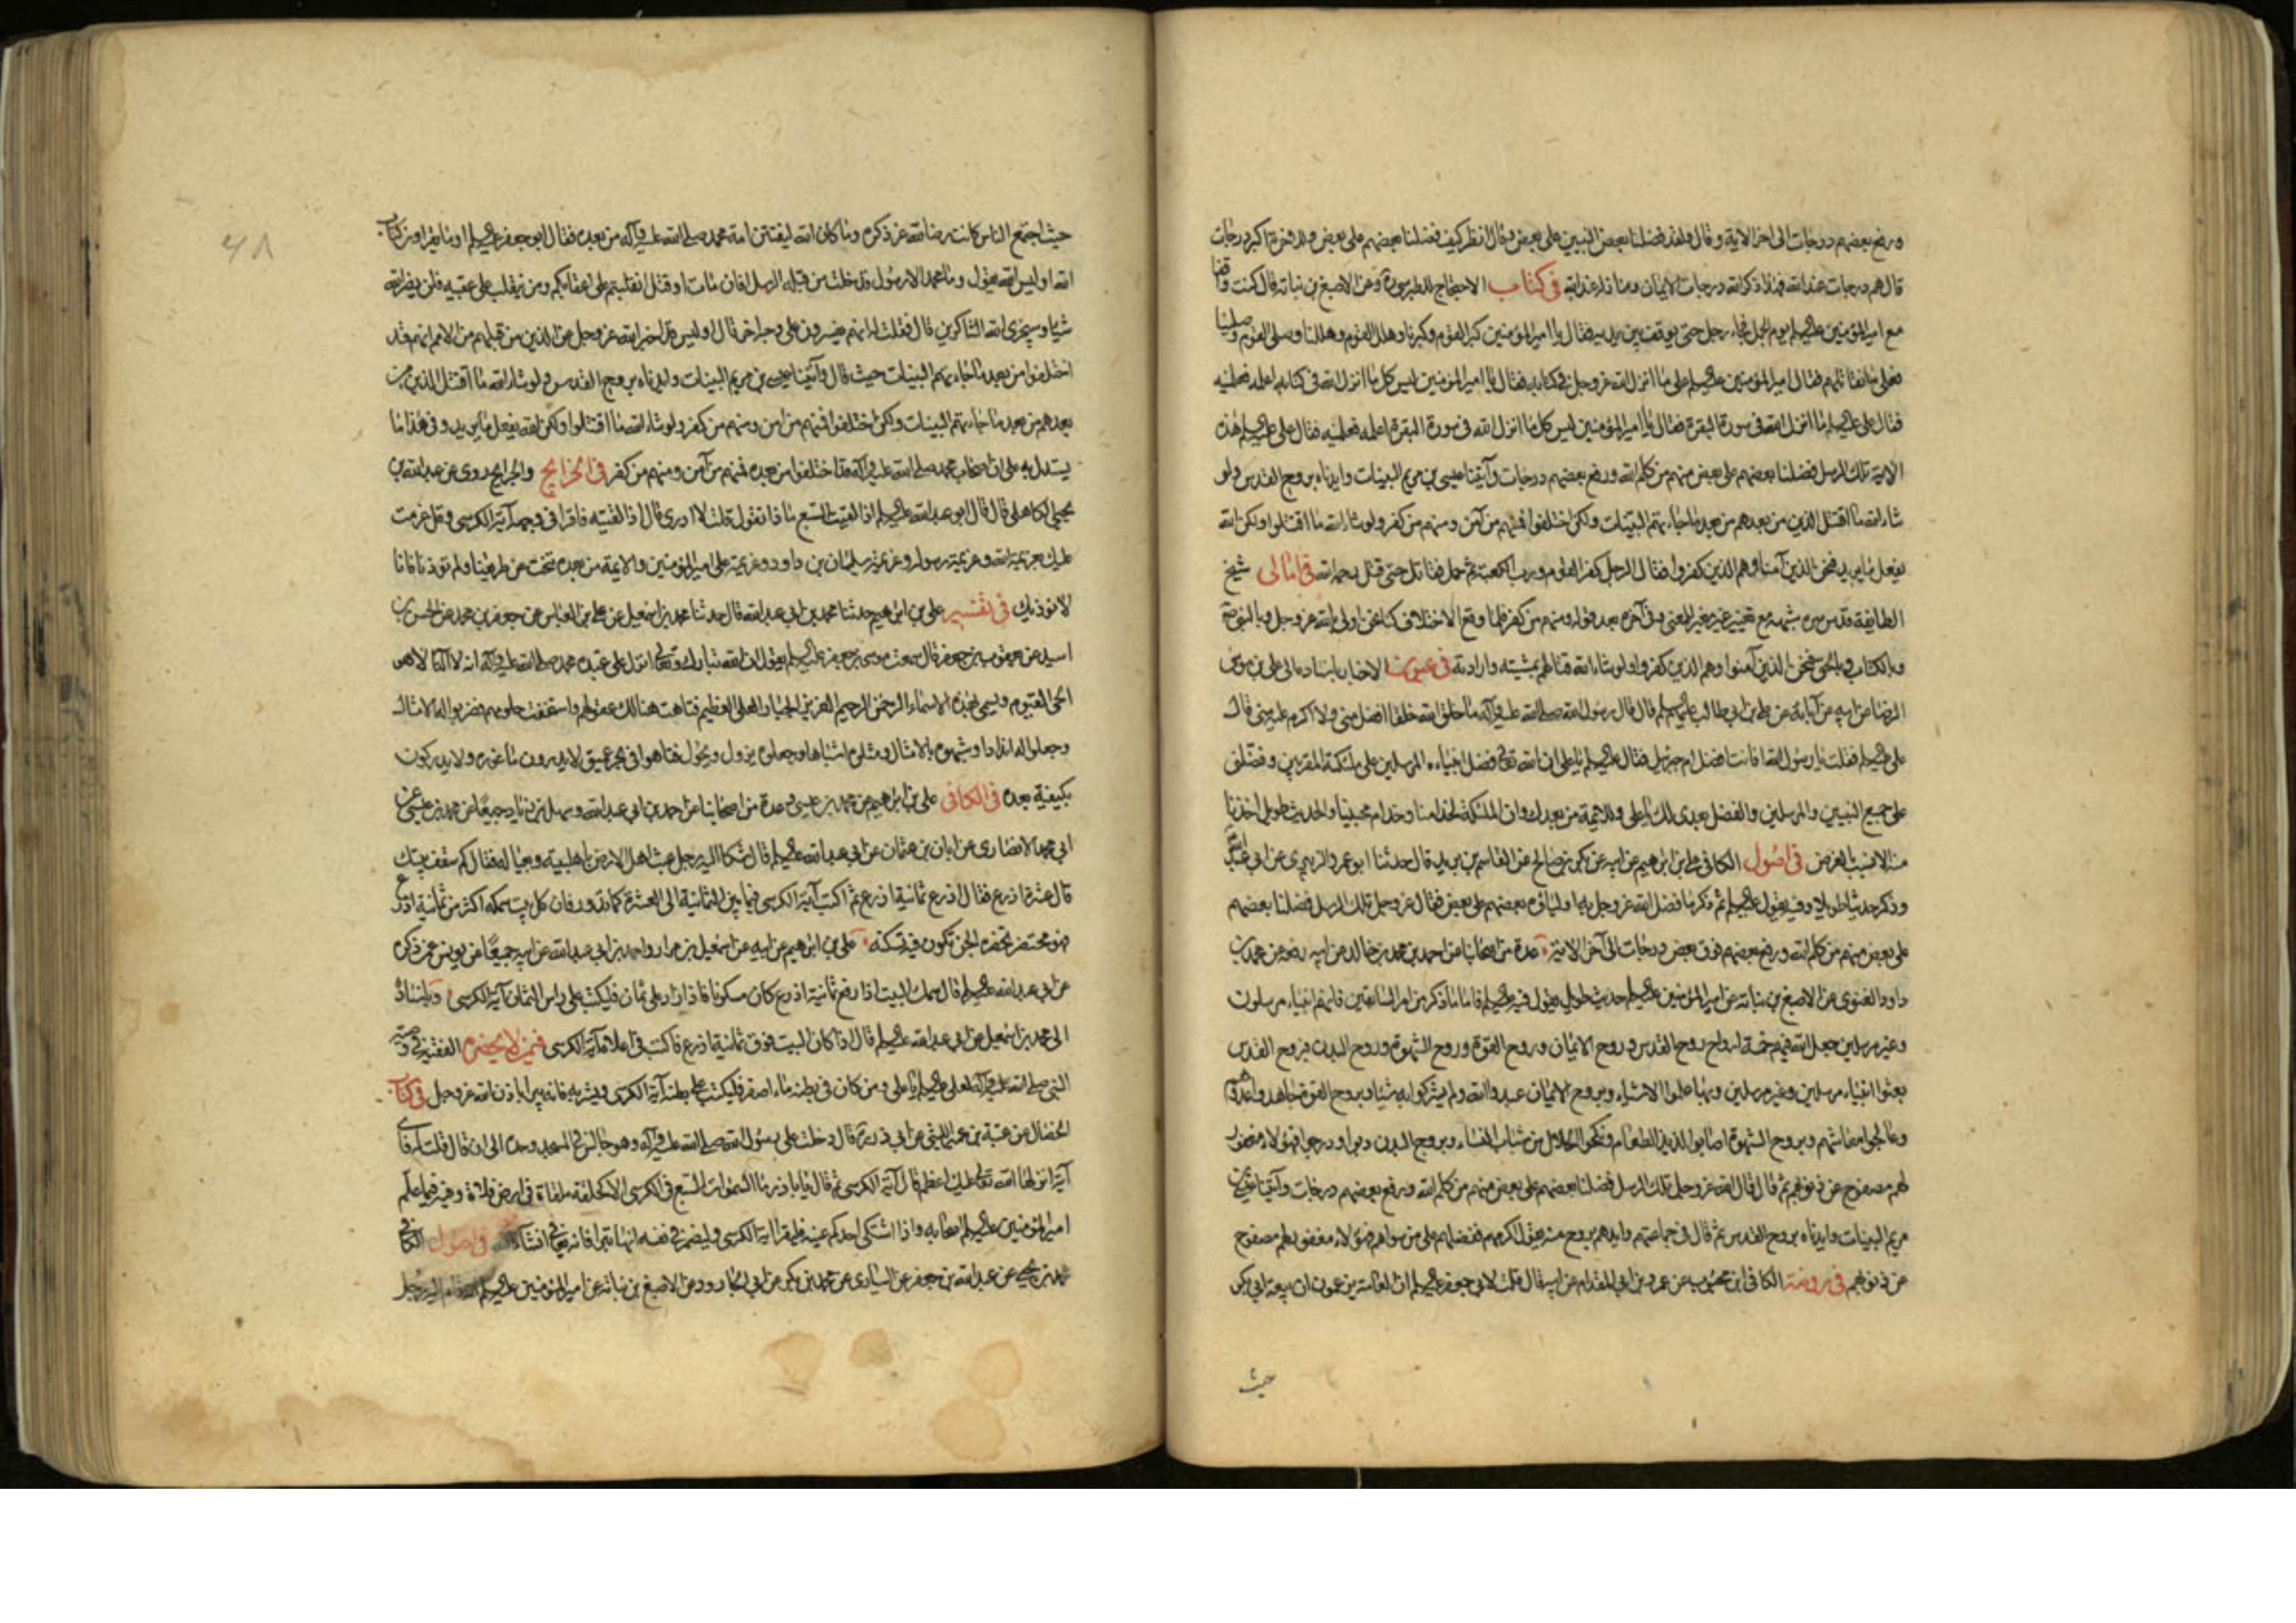 ورفع بعضهم درجات الى اخر الاية وقال ولقد فضلنا بعض النبيين على بعض وقال انظر كيف فضلنا بعضهم على بعض وللاخرة اكبر درجات
قال هم درجات عند الله فهذا ذكر الله درجات الايمان ومنازله عند الله في كتاب الاحتجاج للطبرسي وعن الاصبغ بن نباته قال كنت واقفا
مع امير المؤمنين عليه السلم يوم الجمل فجاء رجل حتى وقف بين يديه فقال يا امير المؤمنين كبر القوم وكبرنا وهلل القوم وهللنا وصلى القوم وصلينا
فعلى ما نقاتلهم فقال امير المؤمنين عليه السلم على ما انزل الله عز وجل في كتابه فقال يا امير المؤمنين ليس كل ما انزل الله في كتابه اعلمه فعلمنيه
فقال على عليه السلم ما انزل الله في سورة البقرة فقال يا امير المؤمنين ليس كل ما انزل الله في سورة البقرة اعلمه فعلمنيه فقال على عليه السلم هذه
الاية تلك الرسل فضلنا بعضهم على بعض منهم من كلم الله ورفع بعضهم درجات وآتينا عيسى بن مريم البينات وايدناه بروح القدس ولو
شاء الله ما اقتتل الذين من بعدهم من بعد ما جاءتهم البينات ولكن اختلفوا فمنهم من آمن ومنهم من كفر ولو شاء الله ما اقتتلوا ولكن الله
يفعل ما يريد فنحن الذين آمنا وهم الذين كفروا فقال الرجل كفر القوم ورب الكعبة ثم حمل فقاتل حتى قتل رحمه الله في امالى شيخ
الطايفة قدس سره شبهه مع تغيير غير مغير للمعنى وفي آخره بعد قوله ومنهم من كفر فلما وقع الاختلاف كنا نحن اولى بالله عز وجل وبالنبي
وبالكتاب وبالحق فنحن الذين آمنوا وهم الذين كفروا ولو شاء الله قتالهم بمشيته وارادته في عيون الاخبار باسناده الى على بن موسى
الرضا عن ابيه عن آبائه عن على بن ابي طالب عليهم السلم قال قال رسول الله صلى الله عليه وآله ما خلق الله خلقا افضل منى ولا اكرم عليه منى قال
على عليه السلم فقلت يا رسول الله افانت افضل ام جبرئيل فقال عليه السلم يا على ان الله تعالى فضل انبياءه المرسلين على ملئكته المقربين وفضلنى
على جميع النبيين والمرسلين والفضل بعدى لك يا على وللائمة من بعدك وان الملئكة لخدامنا وخدام محبينا والحديث طويل اخذنا
منه الانسب بالغرض في اصول الكافي على بن ابراهيم عن ابيه عن بكر بن صالح عن القاسم بن بريد قال حدثنا ابو عمرو الزبيرى عن ابي عبد الله
وذكر حديثا طويلا وفيه يقول عليه السلم ثم ذكر ما فضل الله عز وجل به اولياءه بعضهم على بعض فقال عز وجل تلك الرسل فضلنا بعضهم
على بعض منهم من كلم الله ورفع بعضهم فوق بعض درجات الى آخر الاية عدة من اصحابنا عن احمد بن محمد بن خالد عن ابيه رفعه عن محمد بن
داود الغنوى عن الاصبغ بن نباته عن امير المؤمنين عليه السلم حديث طويل يقول فيه عليه السلم فاما ما ذكر من امر السابقين فانهم انبياء مرسلون
وغير مرسلين جعل الله فيهم خمسة ارواح روح القدس وروح الايمان وروح القوة وروح الشهوة وروح البدن فبروح القدس
بعثوا انبياء مرسلين وغير مرسلين وبها علموا الاشياء وبروح الايمان عبدوا الله ولم يشركوا به شيئا وبروح القوة جاهدوا عدوهم
وعالجوا معاشهم وبروح الشهوة اصابوا لذيذ الطعام ونكحوا الحلال من شباب النساء وبروح البدن دبوا ودرجوا فهؤلاء مغفور
لهم مصفوح عن ذنوبهم ثم قال قال الله عز وجل تلك الرسل فضلنا بعضهم على بعض منهم من كلم الله ورفع بعضهم درجات وآتينا عيسى بن
مريم البينات وايدناه بروح القدس ثم قال في جماعتهم وايدهم بروح منه يقول اكرمهم ففضلهم على من سواهم فهؤلاء مغفور لهم مصفوح
عن ذنوبهم في روضة الكافي ابن محبوب عن عمرو بن ابي المقدام عن ابيه قال قلت لابي جعفر عليه السلم ان العامة يزعمون ان بيعة ابي بكر
حيث
حيث اجتمع الناس كانت رضا لله عز ذكره وما كان الله ليفتن امة محمد صلى الله عليه وآله من بعده فقال ابو جعفر عليه السلم اوما يقراون كتاب
الله اوليس الله يقول وما محمد الا رسول قد خلت من قبله الرسل افان مات او قتل انقلبتم على اعقابكم ومن ينقلب على عقبيه فلن يضر الله
شيئا وسيجزى الله الشاكرين قال فقلت له انهم يفسرون على وجه اخر قال اوليس قد اخبر الله عز وجل عن الذين من قبلهم من الامم انهم قد
اختلفوا من بعد ما جاءتهم البينات حيث قال وآتينا عيسى بن مريم البينات وايدناه بروح القدس ولو شاء الله ما اقتتل الذين من
بعدهم من بعد ما جاءتهم البينات ولكن اختلفوا فمنهم من امن ومنهم من كفر ولو شاء الله ما اقتتلوا ولكن الله يفعل ما يريد وفي هذا ما
يستدل به على ان اصحاب محمد صلى الله عليه وآله قد اختلفوا من بعده فمنهم من آمن ومنهم من كفر في الخرايج والجرايح روى عن عبد الله بن
يحيى الكاهلى قال قال ابو عبد الله عليه السلم اذا لقيت السبع ماذا تقول قلت لا ادرى قال اذا لقيته فاقرا في وجهه آية الكرسى وقل عزمت
عليك بعزيمة الله وعزيمة رسوله وعزيمة سليمان بن داود وعزيمة على امير المؤمنين والائمة من بعده تنح عن طريقنا ولم تؤذنا فانا
لا نؤذيك في تفسير على بن ابراهيم حدثنا محمد بن ابي عبد الله قال حدثنا محمد بن اسمعيل عن على بن العباس عن جعفر بن محمد عن الحسن بن
اسيد عن يعقوب بن جعفر قال سمعت موسى بن جعفر عليه السلم يقول ان الله تبارك وتعالى انزل على عبده محمد صلى الله عليه وآله انه لا اله الا هو
الحى القيوم ويسمى بهذه الاسماء الرحمن الرحيم العزيز الجبار العلى العظيم فتاهت هنالك عقولهم واستخفت حلومهم فضربوا له الامثال
وجعلوا له اندادا وشبهوه بالامثال ومثلوه اشباها وجعلوه يزول ويحول فتاهوا في بحر عميق لا يدرون ما غوره ولا يدركون
بكيفية بعده في الكافى على بن ابراهيم عن محمد بن عيسى وعدة من اصحابنا عن احمد بن ابي عبد الله وسهل بن زياد جميعا عن محمد بن عيسى عن
ابي محمد الانصارى عن ابان بن عثمان عن ابي عبد الله عليه السلم قال شكا اليه رجل عبث اهل الارض باهل بيته وبعياله فقال كم سقف بيتك
قال عشرة اذرع فقال اذرع ثمانية اذرع ثم اكتب آية الكرسى فيما بين الثمانية الى العشرة كما تدور فان كل بيت سمكه اكثر من ثمانية اذرع
فهو محتضر تحضره الجن تكون فيه تسكنه على بن ابراهيم عن ابيه عن اسمعيل بن مرار واحمد بن ابي عبد الله عن ابيه جميعا عن يونس عمن ذكره
عن ابي عبد الله عليه السلم قال سمك البيت اذا رفع ثمانية اذرع كان مسكونا فاذا زاد على ثمان فليكتب على راس الثمان آية الكرسى وباسناده
الى محمد بن اسمعيل عن ابي عبد الله عليه السلم قال اذا كان البيت فوق ثمانية اذرع فاكتب في اعلاه آية الكرسى فيمن لا يحضره الفقيه في وصية
النبى صلى الله عليه وآله لعلى عليه السلم يا على ومن كان في بطنه ماء اصفر فليكتب على بطنه آية الكرسى ويشربه فانه يبرا باذن الله عز وجل في كتاب
الخصال عن عتبة بن عمير الليثى عن ابي ذر ره قال دخلت على رسول الله صلى الله عليه وآله وهو جالس في المسجد وحده الى ان قال قلت له فاى
آية انزلها الله تعالى عليك اعظم قال آية الكرسى ثم قال يا با ذر ما السموات السبع في الكرسى الا كحلقة ملقاة في ارض فلاة وفيه فيما علم
امير المؤمنين عليه السلم اصحابه واذا اشتكى احدكم عينه فليقرا آية الكرسى وليضمر في نفسه انها تبرا فانه يعافى انشاء الله في اصول الكافى
محمد بن يحيى عن عبد الله بن جعفر عن السيارى عن محمد بن بكر عن ابي الجارود عن الاصبغ بن نباته عن امير المؤمنين عليه السلم انه قام اليه رجل